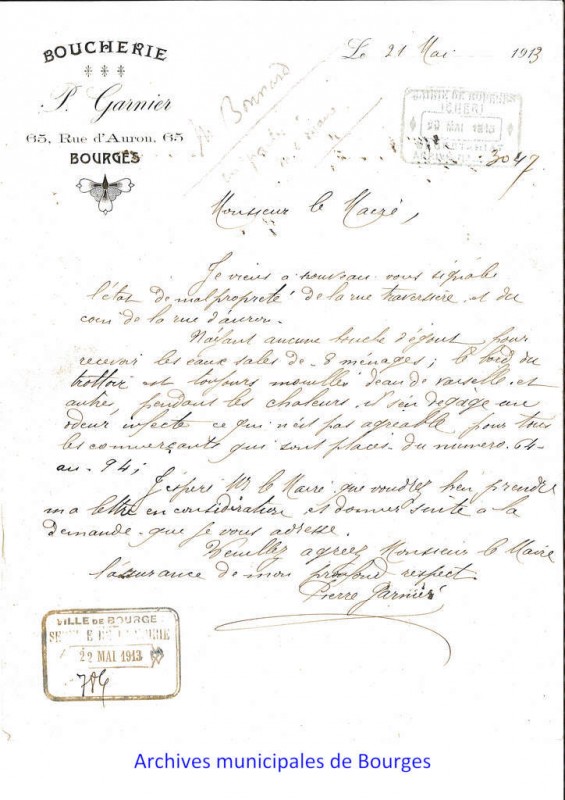 BOUCHERIE
P. Garnier
65, Rue d'Auron, 65
BOURGES
Le 21 Mai 1913
Mr Bonnard
MAIRIE DE BOURGES
(CHER)
MAI 1913
3047
Monsieur le Maire,
Je viens a nouveau vous signale
l'état de malpropreté de la rue traversière et du
coin de la rue d'auron.
N'ayant aucune bouche d'égout pour
recevoir les eaux sales de 8 ménages; le bord du
trottoir est toujours mouillé d'eau de vaisselle et
autres, pendant les chaleurs s'en dégage une
odeur infecte ce qui n'est pas agréable pour tous
les commerçants qui sont placés du numero 64
au 94;
J'espere Mr le Maire que voudrez bien prendre
ma lettre en considération et donner suite a la
demande que je vous adresse.
Veuillez agreez Monsieur le Maire
l'assurance de mon profond respect
Pierre Garnier
VILLE DE BOURGES
SERVICE DE LA VOIRIE
22 MAI 1913
Archives municipales de Bourges